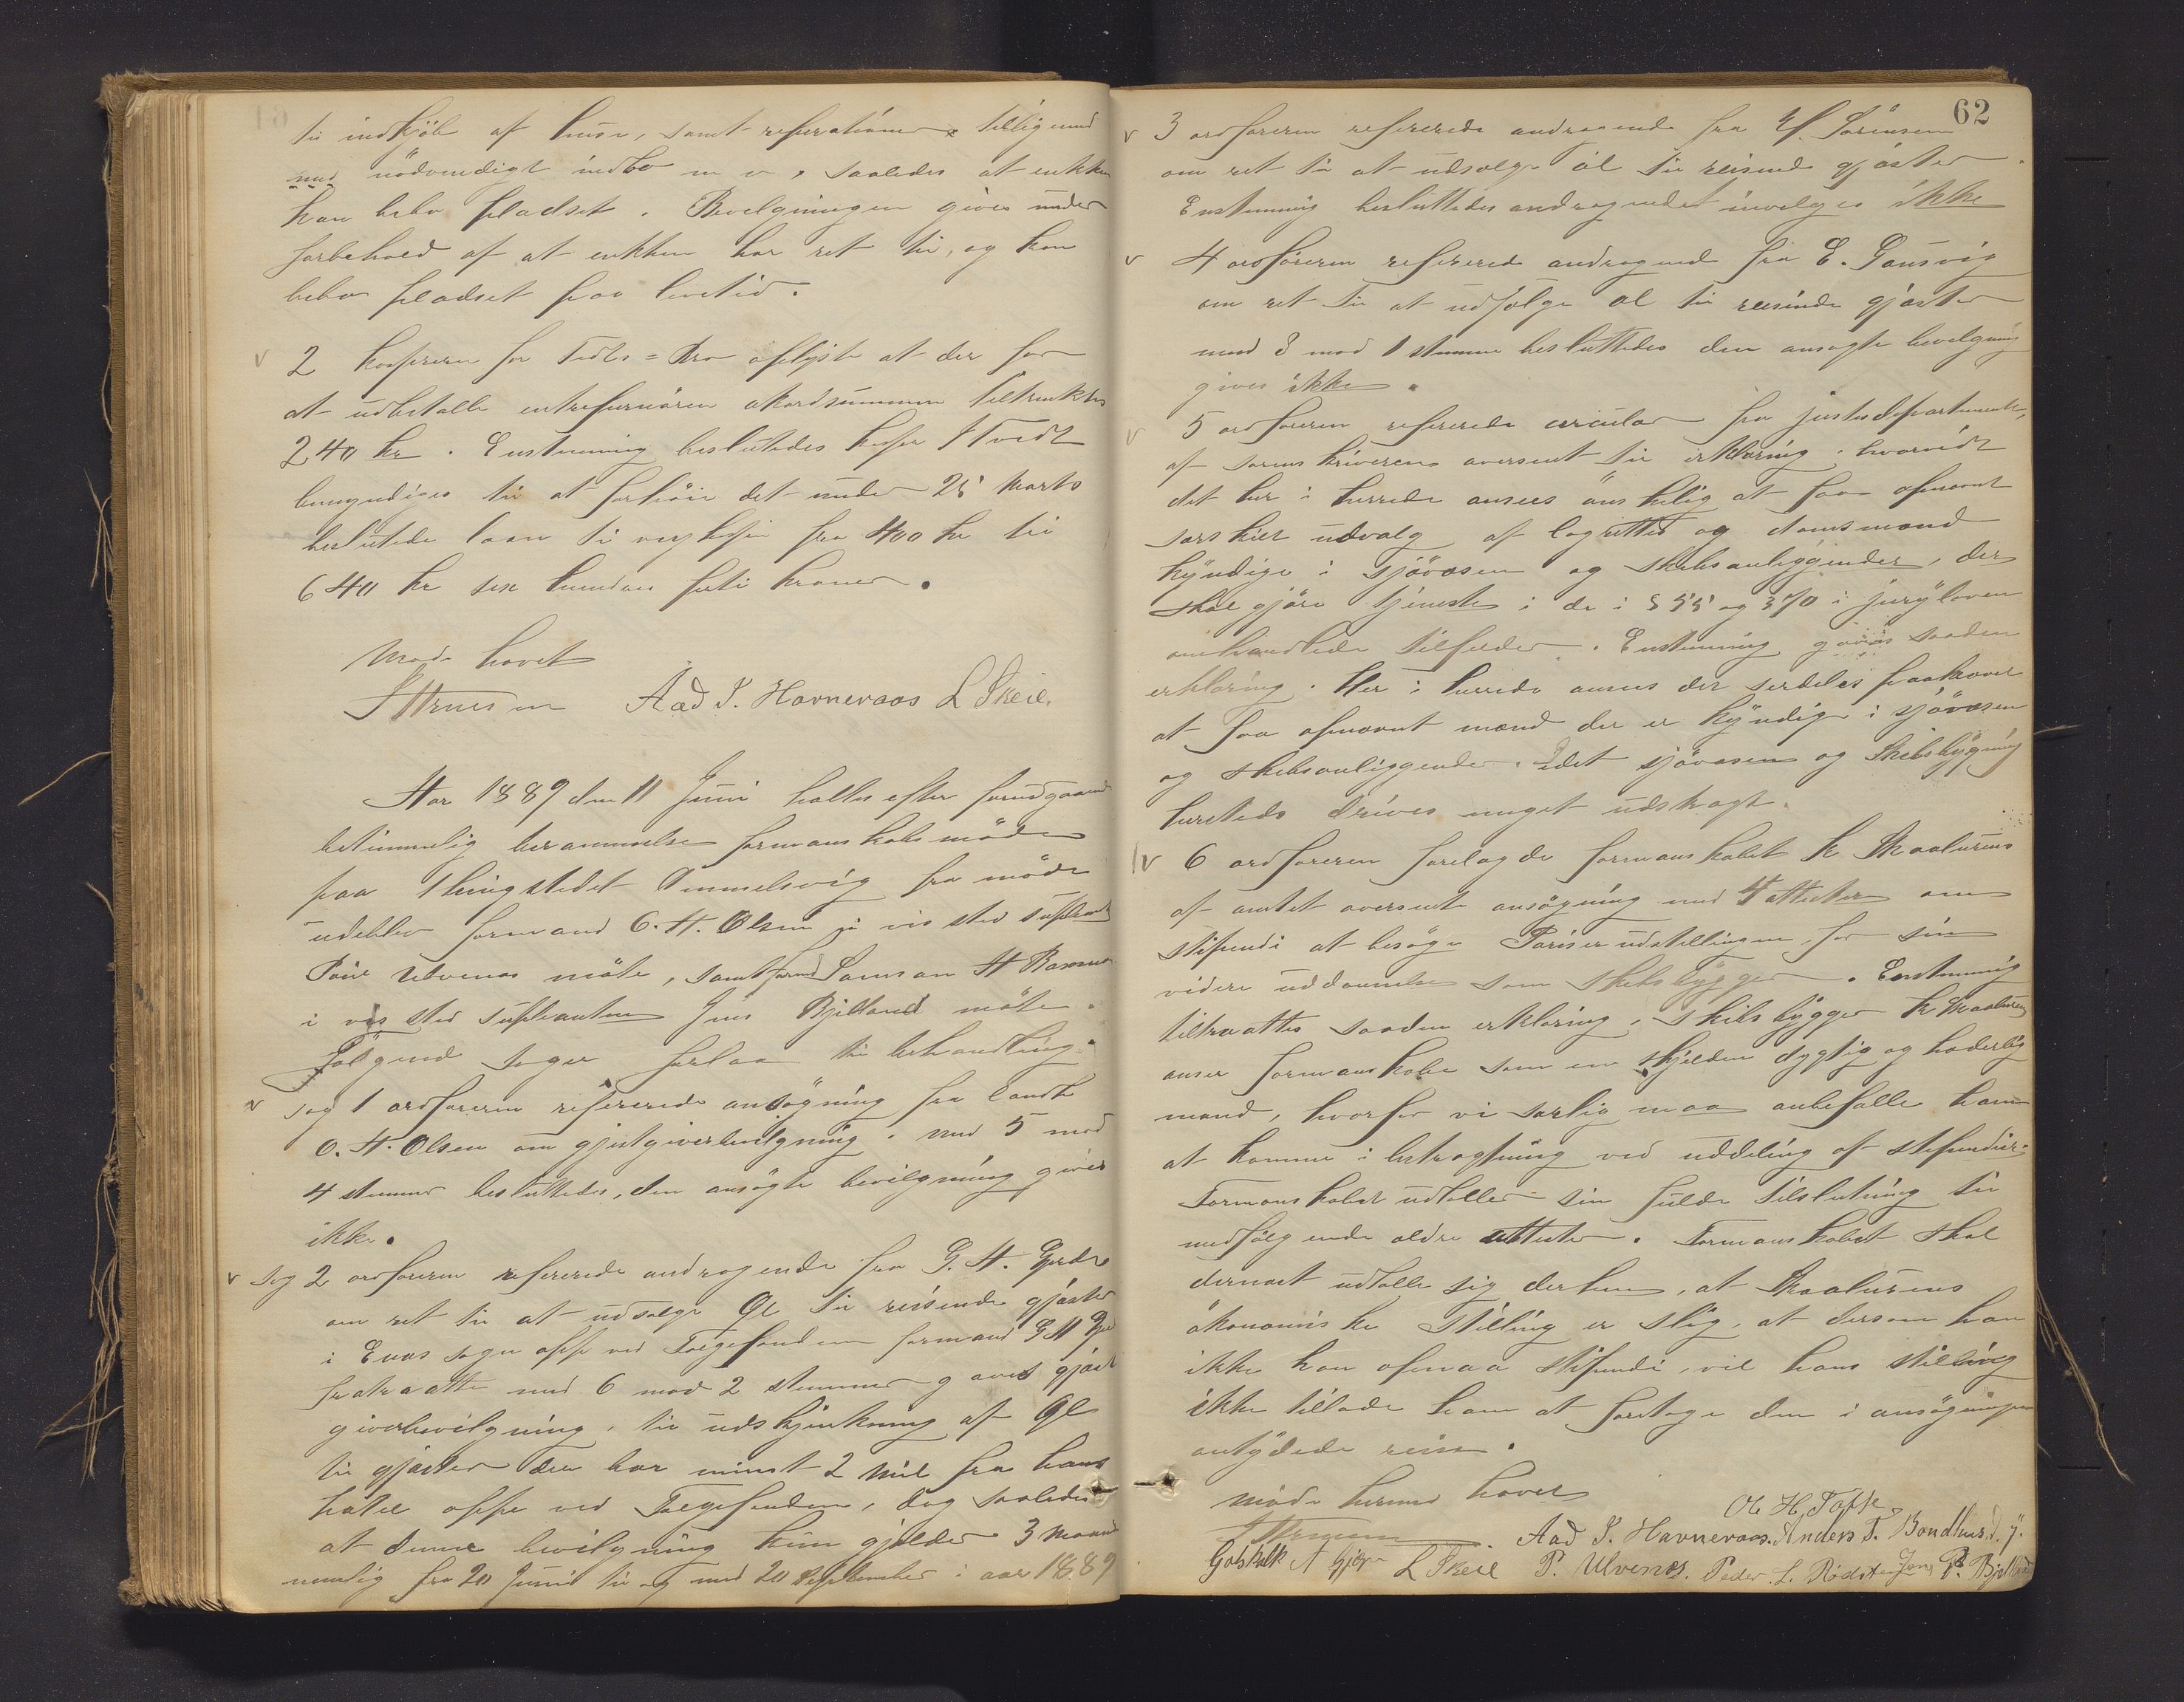 til indkjöb af huse, samt reperationer tilligemed
med nödvendigt indbo m v, saaledes at enken
kan bebo pladset. Bevilgningen gives under
forbehold af at enken har ret til, og kan
bebo pladset paa livstid.
2 kaseren for Tedts=Bro oplyste at der for
at udbetalle entreprenören akordsummen tiltrenktes
240 kr. Enstemmig beslutedes kaser Tvedt
bemyndiges til at forhöie det under 25 Marts
beslutede laan til veykassen fra 400 kr til
640 kr sex hundrer förti kroner.
Möde hævet
Aad J. Havnevaas L Skeie.
Aar 1889 den 11 Juni holtes efter forudgaaende
betimmelig berammelse formanskabsmöde
paa Thingstedet Ommelsvig fra möde
udeblev formand O. H. Olsen i vis sted suplant
Poul Ulvenes möte, samt formd Samson H Rasmus
i vis sted supleanten Jens Bjelland möte.
Fölgend sager forlaa til behandling.
Sag 1 ordföreren refererede ansögning fra Landh
O. H. Olsen om gjestgiverbevilgning. med 5 mod
4 stemmer besluttedes, den ansögte bevilgning gives
ikke.
Sag 2 ordföreren refererede andragende fra G. H. Gjerde
om ret til at udsælge Öl til reisende gjæster
i Enæs sogn oppe ved Folgefonden formand G H Gjer
fratraatte med 6 mod 2 stemmer gaves gjæst
giverbevilgning, til udskjenkning af Öl
til gjæster der har minst 2 Mil fra hans
hotel oppe ved Folgefonden, dog saaledes
at denne bevilgning kun gjelder 3 maaned
nemlig fra 20 Juni til og med 20 September i aar 1889
62
3 ordföreren refererede andragende fra Sörensen
om ret til at udsælge öl til reisende gjæster.
Enstemmig besluttedes andragendet invilges ikke
4 ordföreren refererede andragende fra E. Gausvig
om ret til at udsælge öl til reisende gjæster
med 8 mod 1 stemme besluttedes den ansögte bevilgning
gives ikke.
5 ordföreren refererede circulær fra justisdepartementet,
af sorenskriveren oversent til erklæring. hvorvidt
det her i herrede ansees önskelig at faa opnævnt
særskilt udvalg af lagrettes og domsmænd
kyndige i sjövæsen og skibsanliggender, der
skal gjöre tjeneste i de i § 55 og 370 i juryloven
omhandlede tilfelder. Enstemmig gives saaden
erklæring. Her i herrede ansees der serdeles paakrævet
at faa opnævnt mænd der er kyndige i sjövæsen
og skibsanliggender. Idet sjövæsen og Skibsbygning
heresteds drives meget udstragt.
6 ordföreren forelagde formanskabet K Skaaluruns
af amtet oversente ansögning med 4 attester om
stipendi at besöge Pariserudstillingen, for sin
videre uddannelse som skibsbygger. Enstemmig
tiltraattes saaden erklæring, Skibsbygger K Skaaluren
anser formanskabet som en skjelden dygtig og hæderlig
mand, hvorfor vi særlig maa anbefalle ham
at komme i betragtning ved uddeling af stipendier.
Formanskabet udtaller sin fulde tilslutning til
medfölgende ældre attester. Formanskabet skal
dernæst udtalle sig derhen, at Skaaluruns
ökonomiske Stilling er slig, at dersom han
ikke kan opnaa stipendi, vil hans stilling
ikke tillade ham at foretage den i ansögningen
antydede reise.
Möde hermed hævet
Ole H. Tofte
Aad J. Havnevaas. Anders T. Bondhus. d. y.
Gotskalk H Gjerde L Skeie P. Ulvenes. Peder L. Rödste Jens P. Bjelland